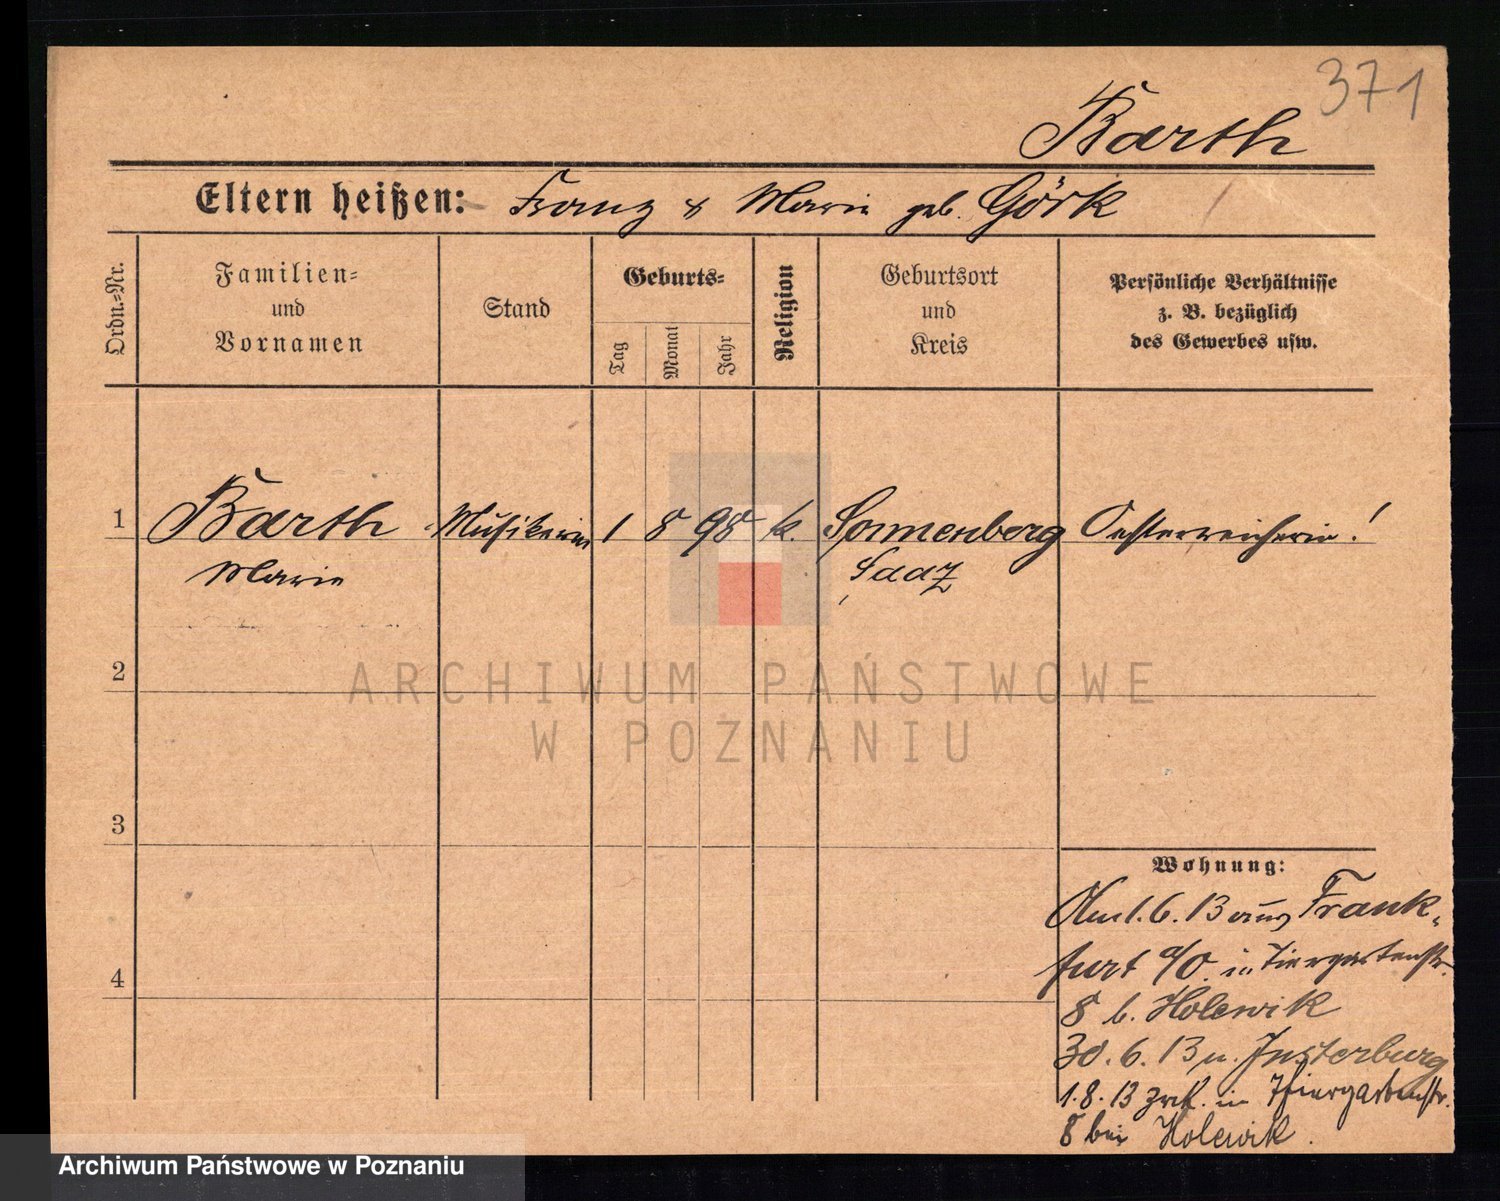 371
Barth
Eltern heißen: Franz & Marie geb. Görk
Ordn.-Nr.
Familien-
und
Vornamen
Stand
Geburts-
Tag
Monat
Jahr
Religion
Geburtsort
und
Kreis
Persönliche Verhältnisse
z. B. bezüglich
des Gewerbes usw.
1 Barth Musikerin 1 8 98 k. Sonnenberg Oesterreicherin!
Marie Saaz
2
ARCHIWUM PAŃSTWOWE
W POZNANIU
3
Wohnung:
Am 1.6.13 aus Frank-
furt a/O. in Tiergartenstr.
4
8 b. Holewik
30.6.13 n. Insterburg
1.8.13 zrk. in Thiergartenstr.
8 bei Holewik.
Archiwum Państwowe w Poznaniu